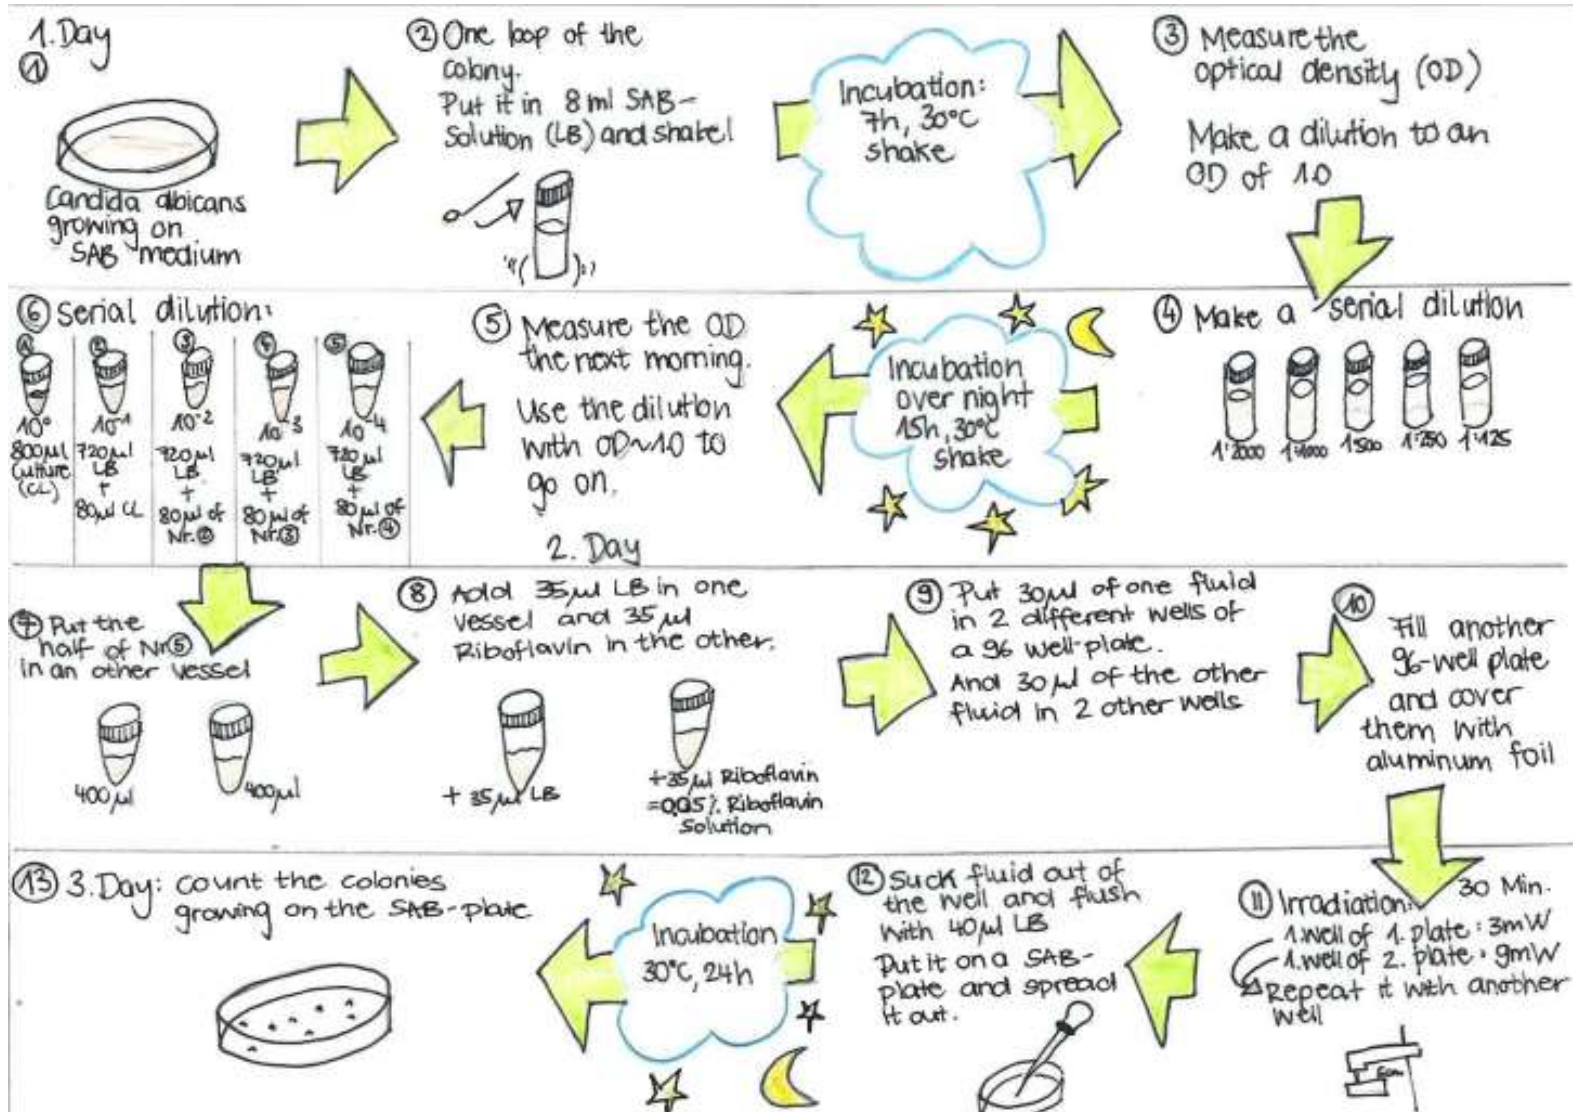 1. Day
①
Candida albicans
growing on
SAB medium
② One loop of the
colony.
Put it in 8 ml SAB-
Solution (LB) and shake!
Incubation:
7h, 30°C
shake
③ Measure the
optical density (OD)
Make a dilution to an
OD of 1.0
④ Make a serial dilution
1:2000 1:1000 1:500 1:250 1:125
Incubation
over night
15h, 30°C
shake
⑤ Measure the OD
the next morning.
Use the dilution
with OD~1.0 to
go on.
2. Day
⑥ Serial dilution:
①
10⁰
800µl
Culture
(CL)
②
10⁻¹
720µl
LB
+
80µl CL
③
10⁻²
720µl
LB
+
80µl of
Nr. ②
④
10⁻³
720µl
LB
+
80µl of
Nr. ③
⑤
10⁻⁴
720µl
LB
+
80µl of
Nr. ④
⑦ Put the
half of Nr. ⑤
in an other vessel
400µl 400µl
⑧ Add 35µl LB in one
vessel and 35µl
Riboflavin in the other.
+ 35µl LB
+35µl Riboflavin
=0,05% Riboflavin
Solution
⑨ Put 30µl of one fluid
in 2 different wells of
a 96 well-plate.
And 30µl of the other
fluid in 2 other wells
⑩
Fill another
96-well plate
and cover
them with
aluminum foil
⑪ Irradiation: 30 Min.
1.well of 1. plate: 3mW
1.well of 2. plate: 9mW
Repeat it with another
well
⑫ Suck fluid out of
the well and flush
with 40µl LB
Put it on a SAB-
plate and spread
it out.
Incubation
30°C, 24h
⑬ 3. Day: count the colonies
growing on the SAB-plate